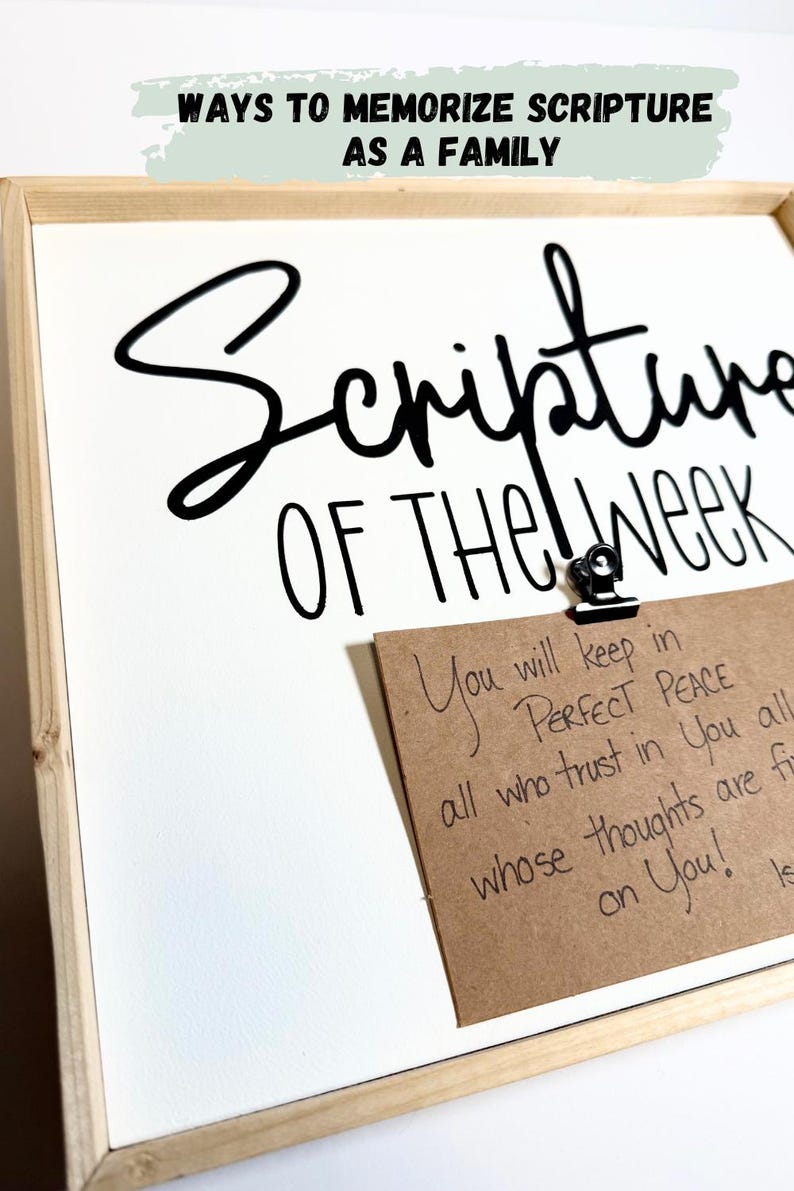 WAYS TO MEMORIZE SCRIPTURE
AS A FAMILY
Scripture
OF THE WEEK
You will keep in
PERFECT PEACE
all who trust in You all
whose thoughts are
on You!